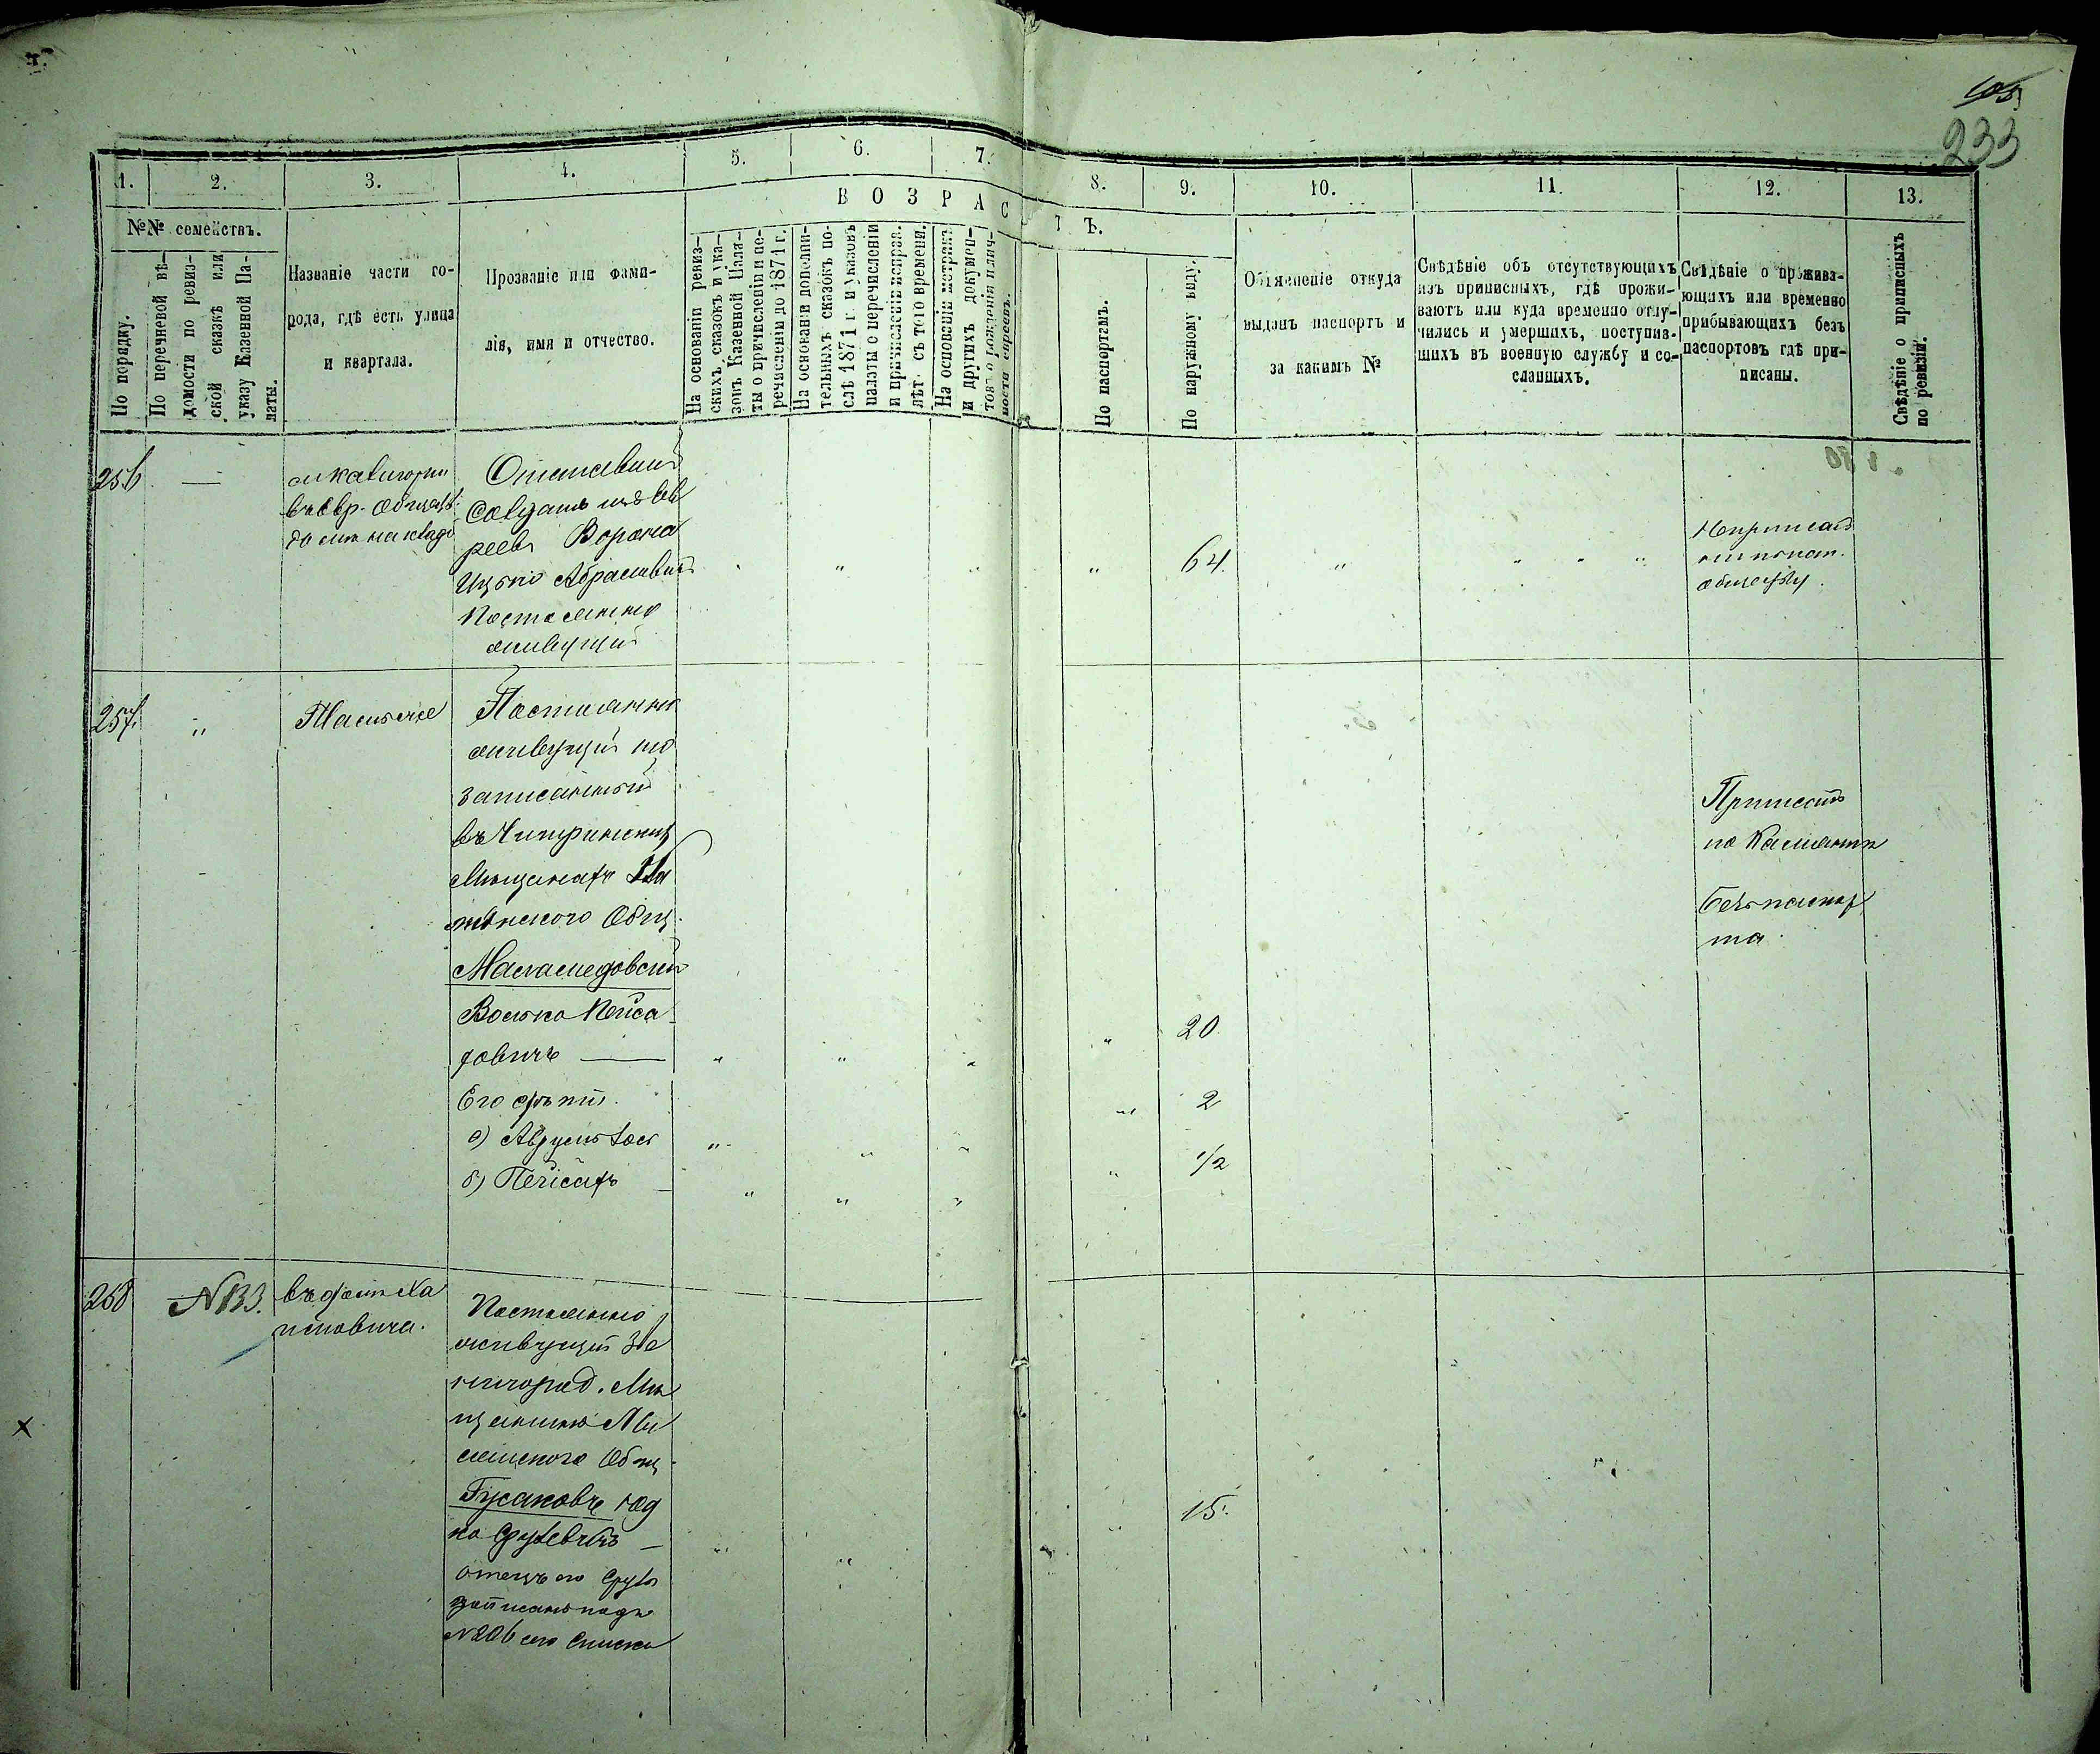 105
233
1.
2.
3.
4.
5.
6.
7.
8.
9.
10.
11.
12.
13.
В О З Р А С Т Ъ.
№№ семействъ.
По порядку.
По перечневой вѣ-
домости по ревиз-
ской сказкѣ или
указу Казенной Па-
латы.
Названіе части го-
рода, гдѣ есть улица
и квартала.
Прозваніе или фами-
лія, имя и отчество.
На основаніи ревиз-
скихъ сказокъ и ука-
зовъ Казенной Пала-
ты о причисленіи и пе-
речисленіи до 1871 г.
На основаніи дополни-
тельныхъ сказокъ по-
слѣ 1871 г. и указовъ
палаты о перечисленіи
и причисленіи исправ.
лѣт. съ того времени.
На основаніи метрикъ
и другихъ докумен-
товъ о рожденіи и лич-
ности евреевъ.
По паспортамъ.
По наружному виду.
Объясненіе откуда
выданъ паспортъ и
за какимъ №
Свѣдѣніе объ отсутствующихъ
изъ приписныхъ, гдѣ прожи-
ваютъ или куда временно отлу-
чились и умершихъ, поступив-
шихъ въ военную службу и со-
сланныхъ.
Свѣдѣніе о прожива-
ющихъ или временно
прибывающихъ безъ
паспортовъ гдѣ при-
писаны.
Свѣдѣніе о приписныхъ
по ревизіи.
256
—
въ Евр. Общест.
Отставный
Солдатъ изъ Ев
реевъ Ворона
Ицько Абрамовичъ
Постоянно
живущій
64.
Неприписанъ
обществу.
257.
Тамъ же
Постоянно
живущій но
записанный
въ Чигиринскихъ
Мѣщанахъ
Общ.
Маламедовскій
Волько Пейса
ховичъ —
20.
Его дѣти.
а) Аврумъ Іось
2
б) Пейсахъ
1/2
Приписанъ
безъ паспор
та.
258
N 133.
въ домѣ Ха
имовича.
Постоянно
живущій Зве
нигород. Мѣ
щанинъ Лы
сянского Общ.
Гусаковъ Юд
ко Срулевичъ —
15.
отецъ его Сруль
записанъ подъ
N 206 сего Списка